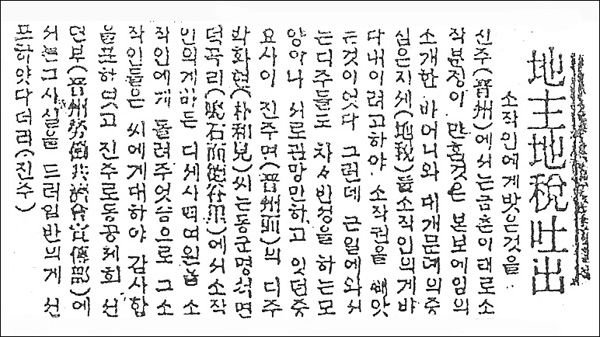 地主地稅吐出
소작인에게밧은것을
진주(晋州)에서는금춘이래로소
작분정이 만흔것은 본보에임의
소개한 바어니와 대개문뎨의중
심은지세(地稅)를소작인의게바
다내이려고하야 소작권을 쌔앗
는것이엇다 그런데 근일에와서
는디주들도 차차반성을 하는모
양이나 서로관망만하고 잇던중
요사이 진주면(晋州面)의 디주
박화현(朴和兒)씨는동군명석면
덕곡리(鳴石面德谷里)에서소작
인의게바든 디세사백여원을 소
작인에게 돌려주엇슴으로 그소
작인들은 씨에게대하야 감사함
을표하엿고 진주로동공제회 선
뎐부(晋州勞働共濟會宣傳部)에
서는그사실을 드러일반의게 선
포하얏다더라(진주)